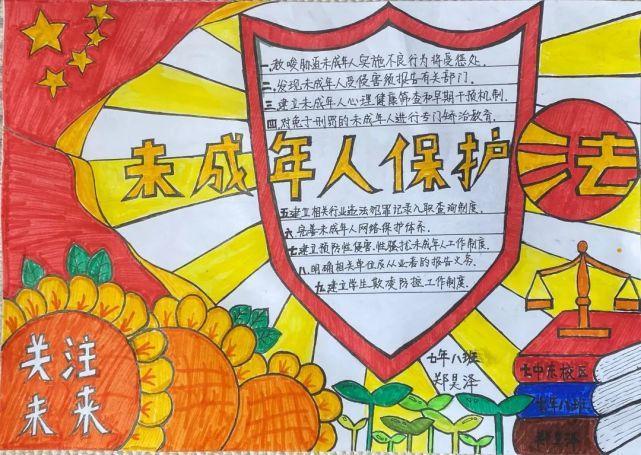 一.教唆胁迫未成年人实施不良行为将受惩处.
二.发现未成年人受侵害须报告有关部门.
三.建立未成年人心理健康筛查和早期干预机制.
四.对免于刑罚的未成年人进行专门矫治教育.
未成年人保护法
五.建立相关行业违法犯罪记录入职查询制度.
六.完善未成年人网络保护体系.
七.建立预防性侵害,性骚扰未成年人工作制度.
八.明确相关单位及从业者的报告义务.
九.建立学生欺凌防控工作制度.
七年八班
郑昊泽
关注
未来
七中东校区
七年八班
郑昊泽